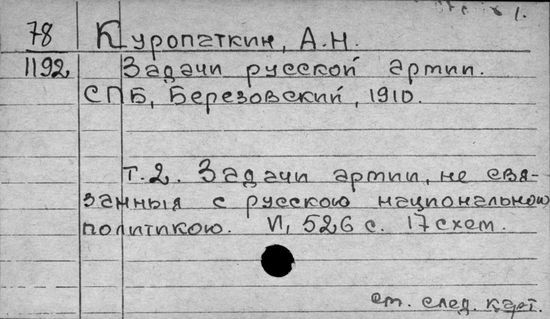 78 Куропаткин, А.Н.
1192 Задачи русской армии.
СПБ, Березовский, 1910.
т.2. Задачи армии, не свя-
занныя с русскою национальною
политикою. VI, 526 с. 17 схем.
см. след. карт.